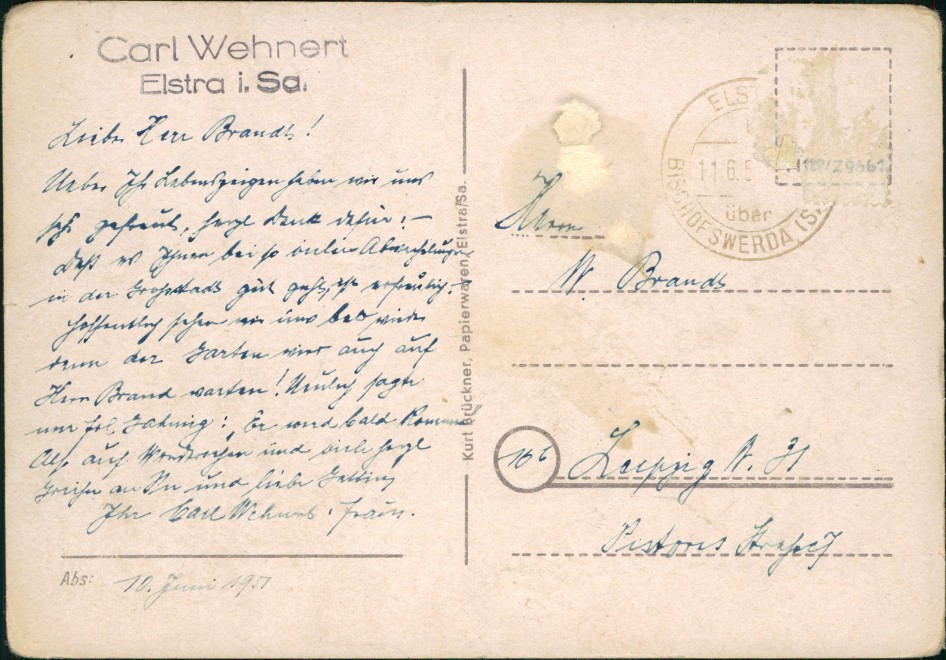 Carl Wehnert
Elstra i. Sa.
Lieber Herr Brandt!
Ueber Ihr Lebenszeigen haben wir uns
sehr gefreut, herzl Dank dafür! –
Daß es Ihnen bei so vielen Abwechslungen
in der Großstadt gut geht, ist erfreulich. –
Hoffentlich sehen wir uns bald wieder
denn der Garten wird auch auf
Herrn Brand warten! Neulich sagte
nur : Er wird bald kommen"
Also auf Wiedersehen und viele herzl
Grüße an Sie und liebe Gattin
Ihr Carl Wehnert u. Frau.
Abs: 10. Juni 1951
Kurt Brückner, Papierwaren, Elstra/Sa.
ELST
11.6.5
über
BISCHOFSWERDA (S.
Herrn
W. Brandt
10b Leipzig W. 31
Pistoris Straße